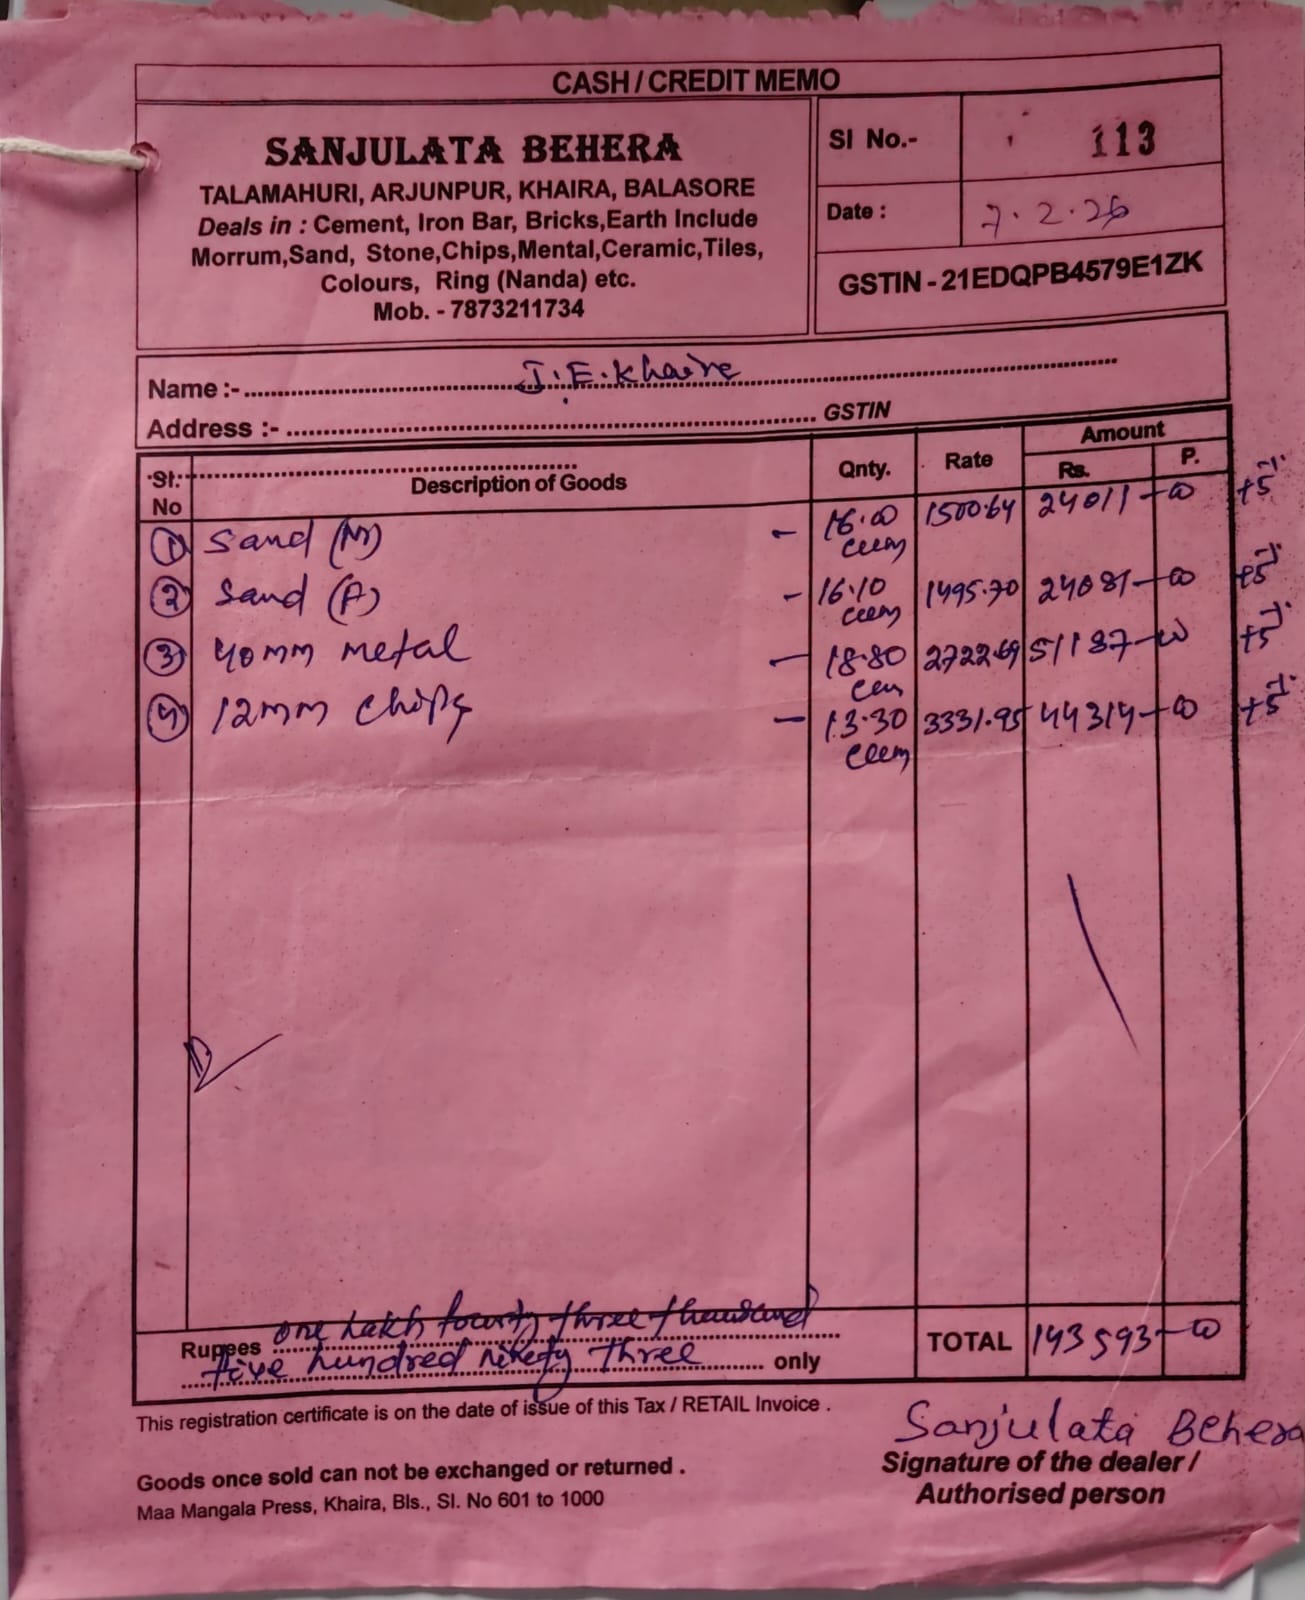 CASH / CREDIT MEMO
SANJULATA BEHERA
TALAMAHURI, ARJUNPUR, KHAIRA, BALASORE
Deals in : Cement, Iron Bar, Bricks,Earth Include
Morrum,Sand, Stone,Chips,Mental,Ceramic,Tiles,
Colours, Ring (Nanda) etc.
Mob. - 7873211734
Sl No.- 113
Date : 7.2.26
GSTIN - 21EDQPB4579E1ZK
Name :- J.E.Khaira
Address :- GSTIN
Sl. No Description of Goods Qnty. Rate Amount Rs. P.
1 Sand (M) - 16.00 cum 1500.64 24011-00 +5%
2 Sand (F) - 16.10 cum 1495.70 24081-00 +5%
3 40mm metal - 18.80 cum 2722.69 51187-00 +5%
4 12mm chips - 13.30 cum 3331.95 44314-00 +5%
Rupees one Lakh fourty three thousand
five hundred ninety three only
TOTAL 143593-00
This registration certificate is on the date of issue of this Tax / RETAIL Invoice .
Sanjulata Behera
Signature of the dealer /
Authorised person
Goods once sold can not be exchanged or returned .
Maa Mangala Press, Khaira, Bls., Sl. No 601 to 1000